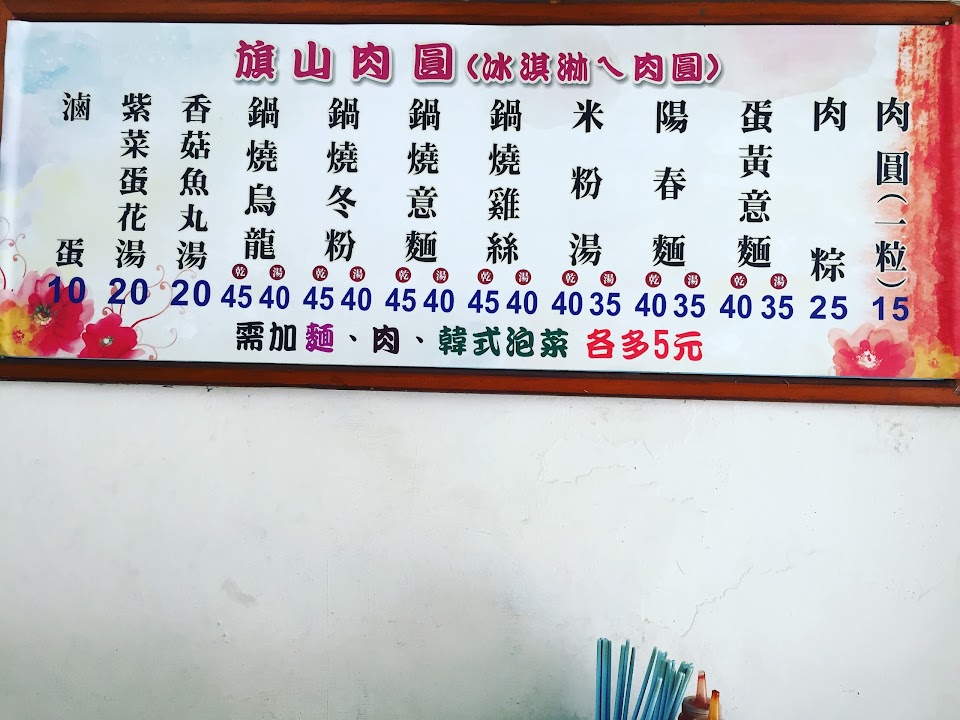 旗山肉圓(冰淇淋ㄟ肉圓)
肉圓(一粒) 15
肉粽 25
蛋黃意麵 乾 40 湯 35
陽春麵 乾 40 湯 35
米粉湯 乾 40 湯 35
鍋燒雞絲 乾 45 湯 40
鍋燒意麵 乾 45 湯 40
鍋燒冬粉 乾 45 湯 40
鍋燒烏龍 乾 45 湯 40
香菇魚丸湯 20
紫菜蛋花湯 20
滷蛋 10
需加麵、肉、韓式泡菜 各多5元